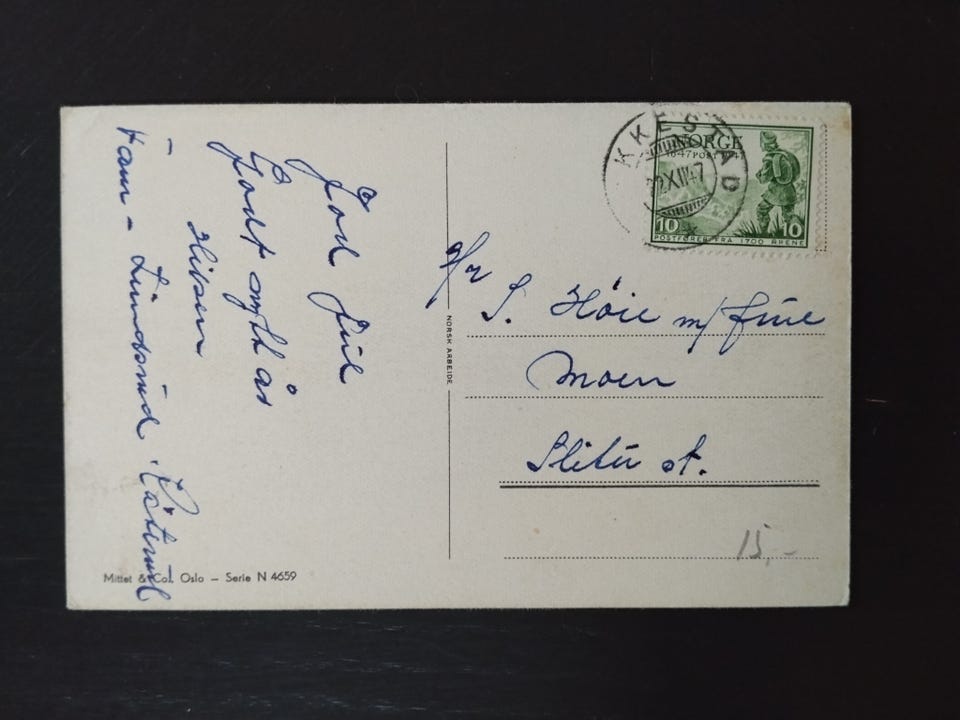 God Jul
&
Godt nytt år
Hilsen
Fam. Lundsrud.
NORSK ARBEIDE
Mittet & Co. Oslo – Serie N 4659
KKESTAD
XII 47
NORGE
1647 POST 1947
10 10
POSTFØRER FRA 1700 ÅRENE
S. Høie m/ frue
Moen
Slitu st.
15,-